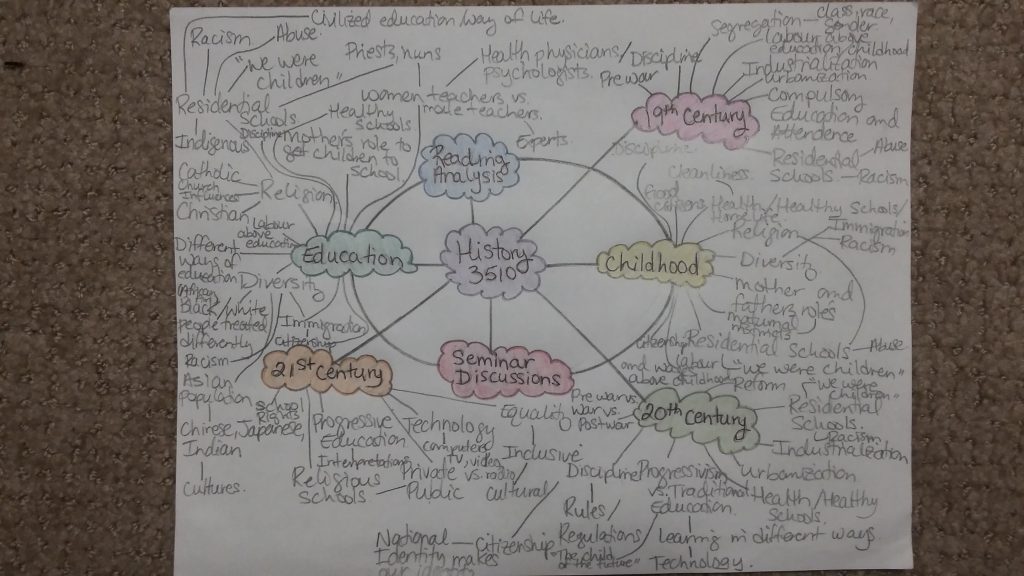 Civilized education/way of life.
Racism
Abuse.
"We were
children"
Priests, nuns
Health physicians/
psychologists.
Residential
Schools
Discipline
Indigenous
women teachers vs.
male teachers.
Healthy
Schools
mothers role to
get children to
School
Catholic
Church
Influences
Christian
Religion
Labour
above
education
Reading
Analysis
Experts.
Segregation
class, race,
gender
Discipline
Labour above
education, childhood
Pre war
Industrialization
urbanization
19th Century
Compulsory
Education and
Attendence
Residential
Schools
Abuse
Racism
Discipline
Cleanliness.
Health/Healthy Schools/
Home Life.
Religion
Immigration
Racism
Diversity
Education
History
3510
Childhood
mother and
fathers roles
maternal
Different
ways of
education
Diversity
Black/White
people treated
differently
Racism
Immigration
Citizenship
Asian
Population
Chinese, Japanese,
Indian
Cultures.
21st Century
Seminar
Discussions
Residential Schools
Abuse
"we were children"
and
labour
above childhood
Reform
"we were
children"
Residential
Schools.
Racism
20th Century
Pre war vs.
war vs.
Postwar
Industrialization
Urbanization
Health/Healthy
Schools.
Progressive
Education
Interpretations
Religious
Schools
Technology
computers,
TV, video
radio
Private vs.
Public
Equality
Inclusive
cultural
Discipline
Rules
Regulations
"The child
of the future"
Progressivism
vs. Traditional
Education.
Learning in different ways
Technology.
National
Identity makes
our
Citizenship